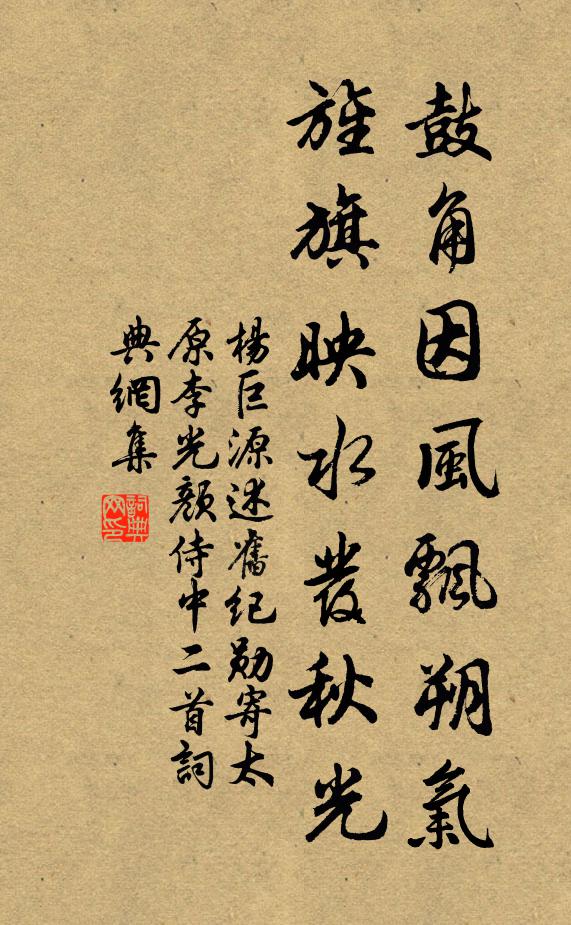 鼓角因風飄朔氣
旌旗映水發秋光
楊巨源述舊紀勛寄太
原李光顏侍中二首詞
典網集
詞典
网印